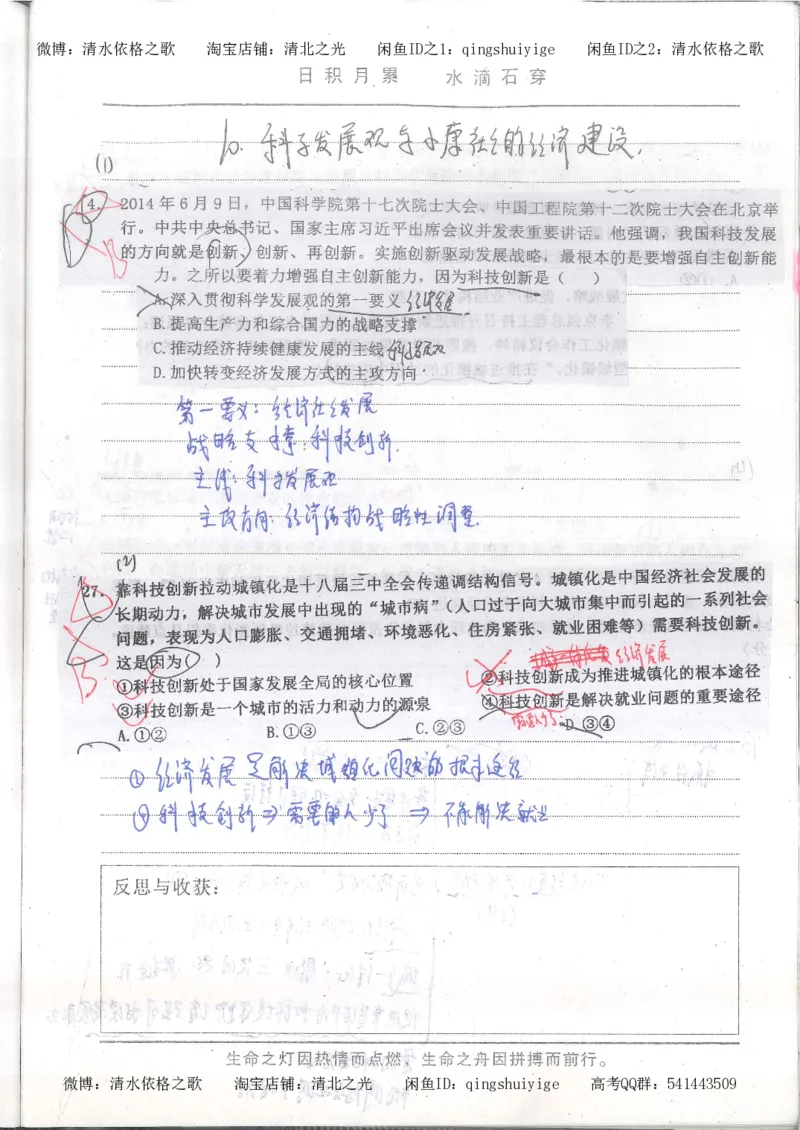 微博：清水依格之歌 淘宝店铺：清北之光 闲鱼ID之1：qingshuiyige 闲鱼ID之2：清水依格之歌
日积月累 水滴石穿
10. 科学发展观与小康社会的经济建设.
(1)
4. 2014年6月9日，中国科学院第十七次院士大会、中国工程院第十二次院士大会在北京举
行。中共中央总书记、国家主席习近平出席会议并发表重要讲话。他强调，我国科技发展
的方向就是创新、创新、再创新。实施创新驱动发展战略，最根本的是要增强自主创新能
力。之所以要着力增强自主创新能力，因为科技创新是（ ）
B
A.深入贯彻科学发展观的第一要义 经济发展
B.提高生产力和综合国力的战略支撑
C.推动经济持续健康发展的主线 科学发展观
D.加快转变经济发展方式的主攻方向
第一要义：经济社会发展
战略支撑：科技创新.
主线：科学发展观
主攻方向：经济结构战略性调整.
(2)
27. 靠科技创新拉动城镇化是十八届三中全会传递调结构信号。城镇化是中国经济社会发展的
长期动力，解决城市发展中出现的“城市病”（人口过于向大城市集中而引起的一系列社会
问题，表现为人口膨胀、交通拥堵、环境恶化、住房紧张、就业困难等）需要科技创新。
这是因为（ ） 经济发展
B
①科技创新处于国家发展全局的核心位置 ②科技创新成为推进城镇化的根本途径
③科技创新是一个城市的活力和动力的源泉 ④科技创新是解决就业问题的重要途径
A.①② B.①③ C.②③ D.③④
① 经济发展是解决城镇化问题的根本途径
④ 科技创新⇒需要的人少了 ⇒ 不能解决就业
反思与收获：
生命之灯因热情而点燃，生命之舟因拼搏而前行。
微博：清水依格之歌 淘宝店铺：清北之光 闲鱼ID：qingshuiyige 高考QQ群：541443509